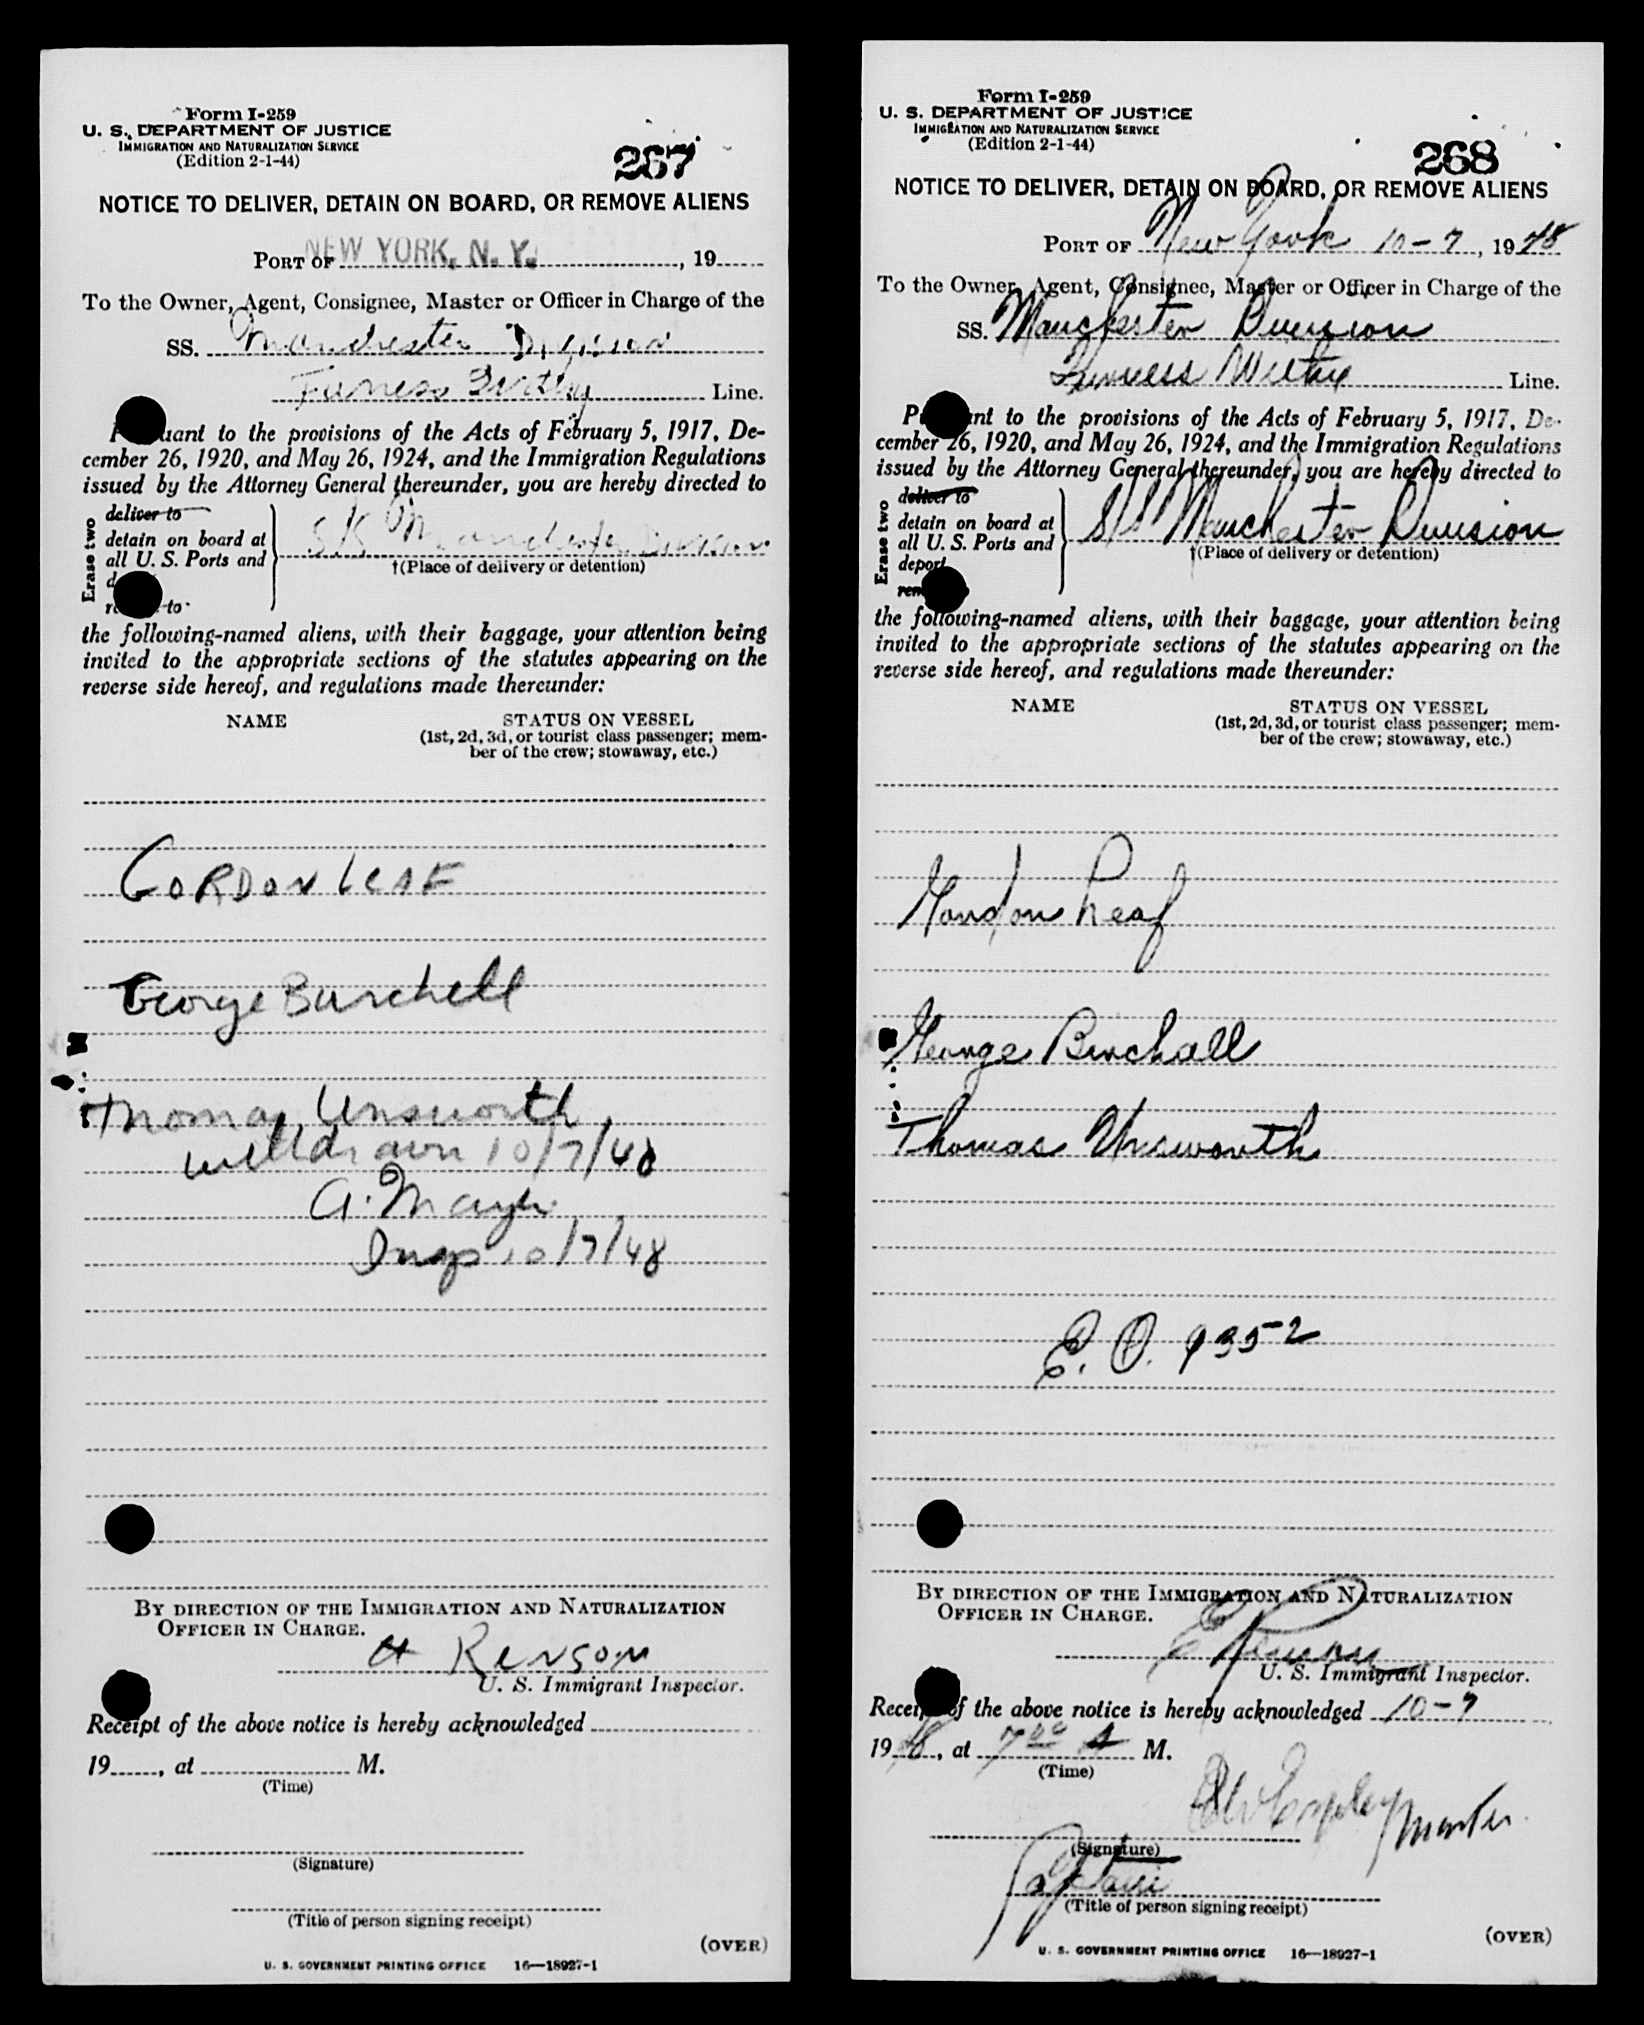 Form I-259
U. S. DEPARTMENT OF JUSTICE
IMMIGRATION AND NATURALIZATION SERVICE
(Edition 2-1-44)
267
NOTICE TO DELIVER, DETAIN ON BOARD, OR REMOVE ALIENS
PORT OF NEW YORK, N. Y. , 19
To the Owner, Agent, Consignee, Master or Officer in Charge of the
SS. Manchester Division
Furness Withy Line.
uant to the provisions of the Acts of February 5, 1917, De-
cember 26, 1920, and May 26, 1924, and the Immigration Regulations
issued by the Attorney General thereunder, you are hereby directed to
Erase two
deliver to
detain on board at
all U. S. Ports and
to
S/S Manchester Division
†(Place of delivery or detention)
the following-named aliens, with their baggage, your attention being
invited to the appropriate sections of the statutes appearing on the
reverse side hereof, and regulations made thereunder:
NAME STATUS ON VESSEL
(1st, 2d, 3d, or tourist class passenger; mem-
ber of the crew; stowaway, etc.)
GORDON LEAF
George Burchell
Thomas Unsworth
withdrawn 10/7/48
A. Mayer
Insp 10/7/48
BY DIRECTION OF THE IMMIGRATION AND NATURALIZATION
OFFICER IN CHARGE.
Renson
U. S. Immigrant Inspector.
Receipt of the above notice is hereby acknowledged
19 , at M.
(Time)
(Signature)
(Title of person signing receipt)
(OVER)
U. S. GOVERNMENT PRINTING OFFICE 16—18927-1
Form I-259
U. S. DEPARTMENT OF JUSTICE
IMMIGRATION AND NATURALIZATION SERVICE
(Edition 2-1-44)
268
NOTICE TO DELIVER, DETAIN ON BOARD, OR REMOVE ALIENS
PORT OF New York 10-7, 1948
To the Owner, Agent, Consignee, Master or Officer in Charge of the
SS. Manchester Division
Furness Withy Line.
nt to the provisions of the Acts of February 5, 1917, De-
cember 26, 1920, and May 26, 1924, and the Immigration Regulations
issued by the Attorney General thereunder, you are hereby directed to
Erase two
deliver to
detain on board at
all U. S. Ports and
deport
S/S Manchester Division
†(Place of delivery or detention)
the following-named aliens, with their baggage, your attention being
invited to the appropriate sections of the statutes appearing on the
reverse side hereof, and regulations made thereunder:
NAME STATUS ON VESSEL
(1st, 2d, 3d, or tourist class passenger; mem-
ber of the crew; stowaway, etc.)
Gordon Leaf
George Birchall
Thomas Unsworth
E. O. 9352
BY DIRECTION OF THE IMMIGRATION AND NATURALIZATION
OFFICER IN CHARGE.
U. S. Immigrant Inspector.
Receipt of the above notice is hereby acknowledged 10-7
1948, at 7 00 A M.
(Time)
Master
(Signature)
(Title of person signing receipt)
(OVER)
U. S. GOVERNMENT PRINTING OFFICE 16—18927-1